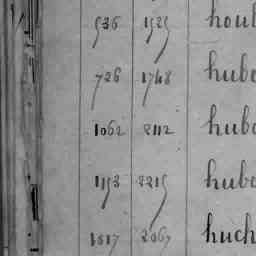 536 1525 houb
726 1748 hube
1062 2112 hube
1153 2215 hube
1817 2067 huch